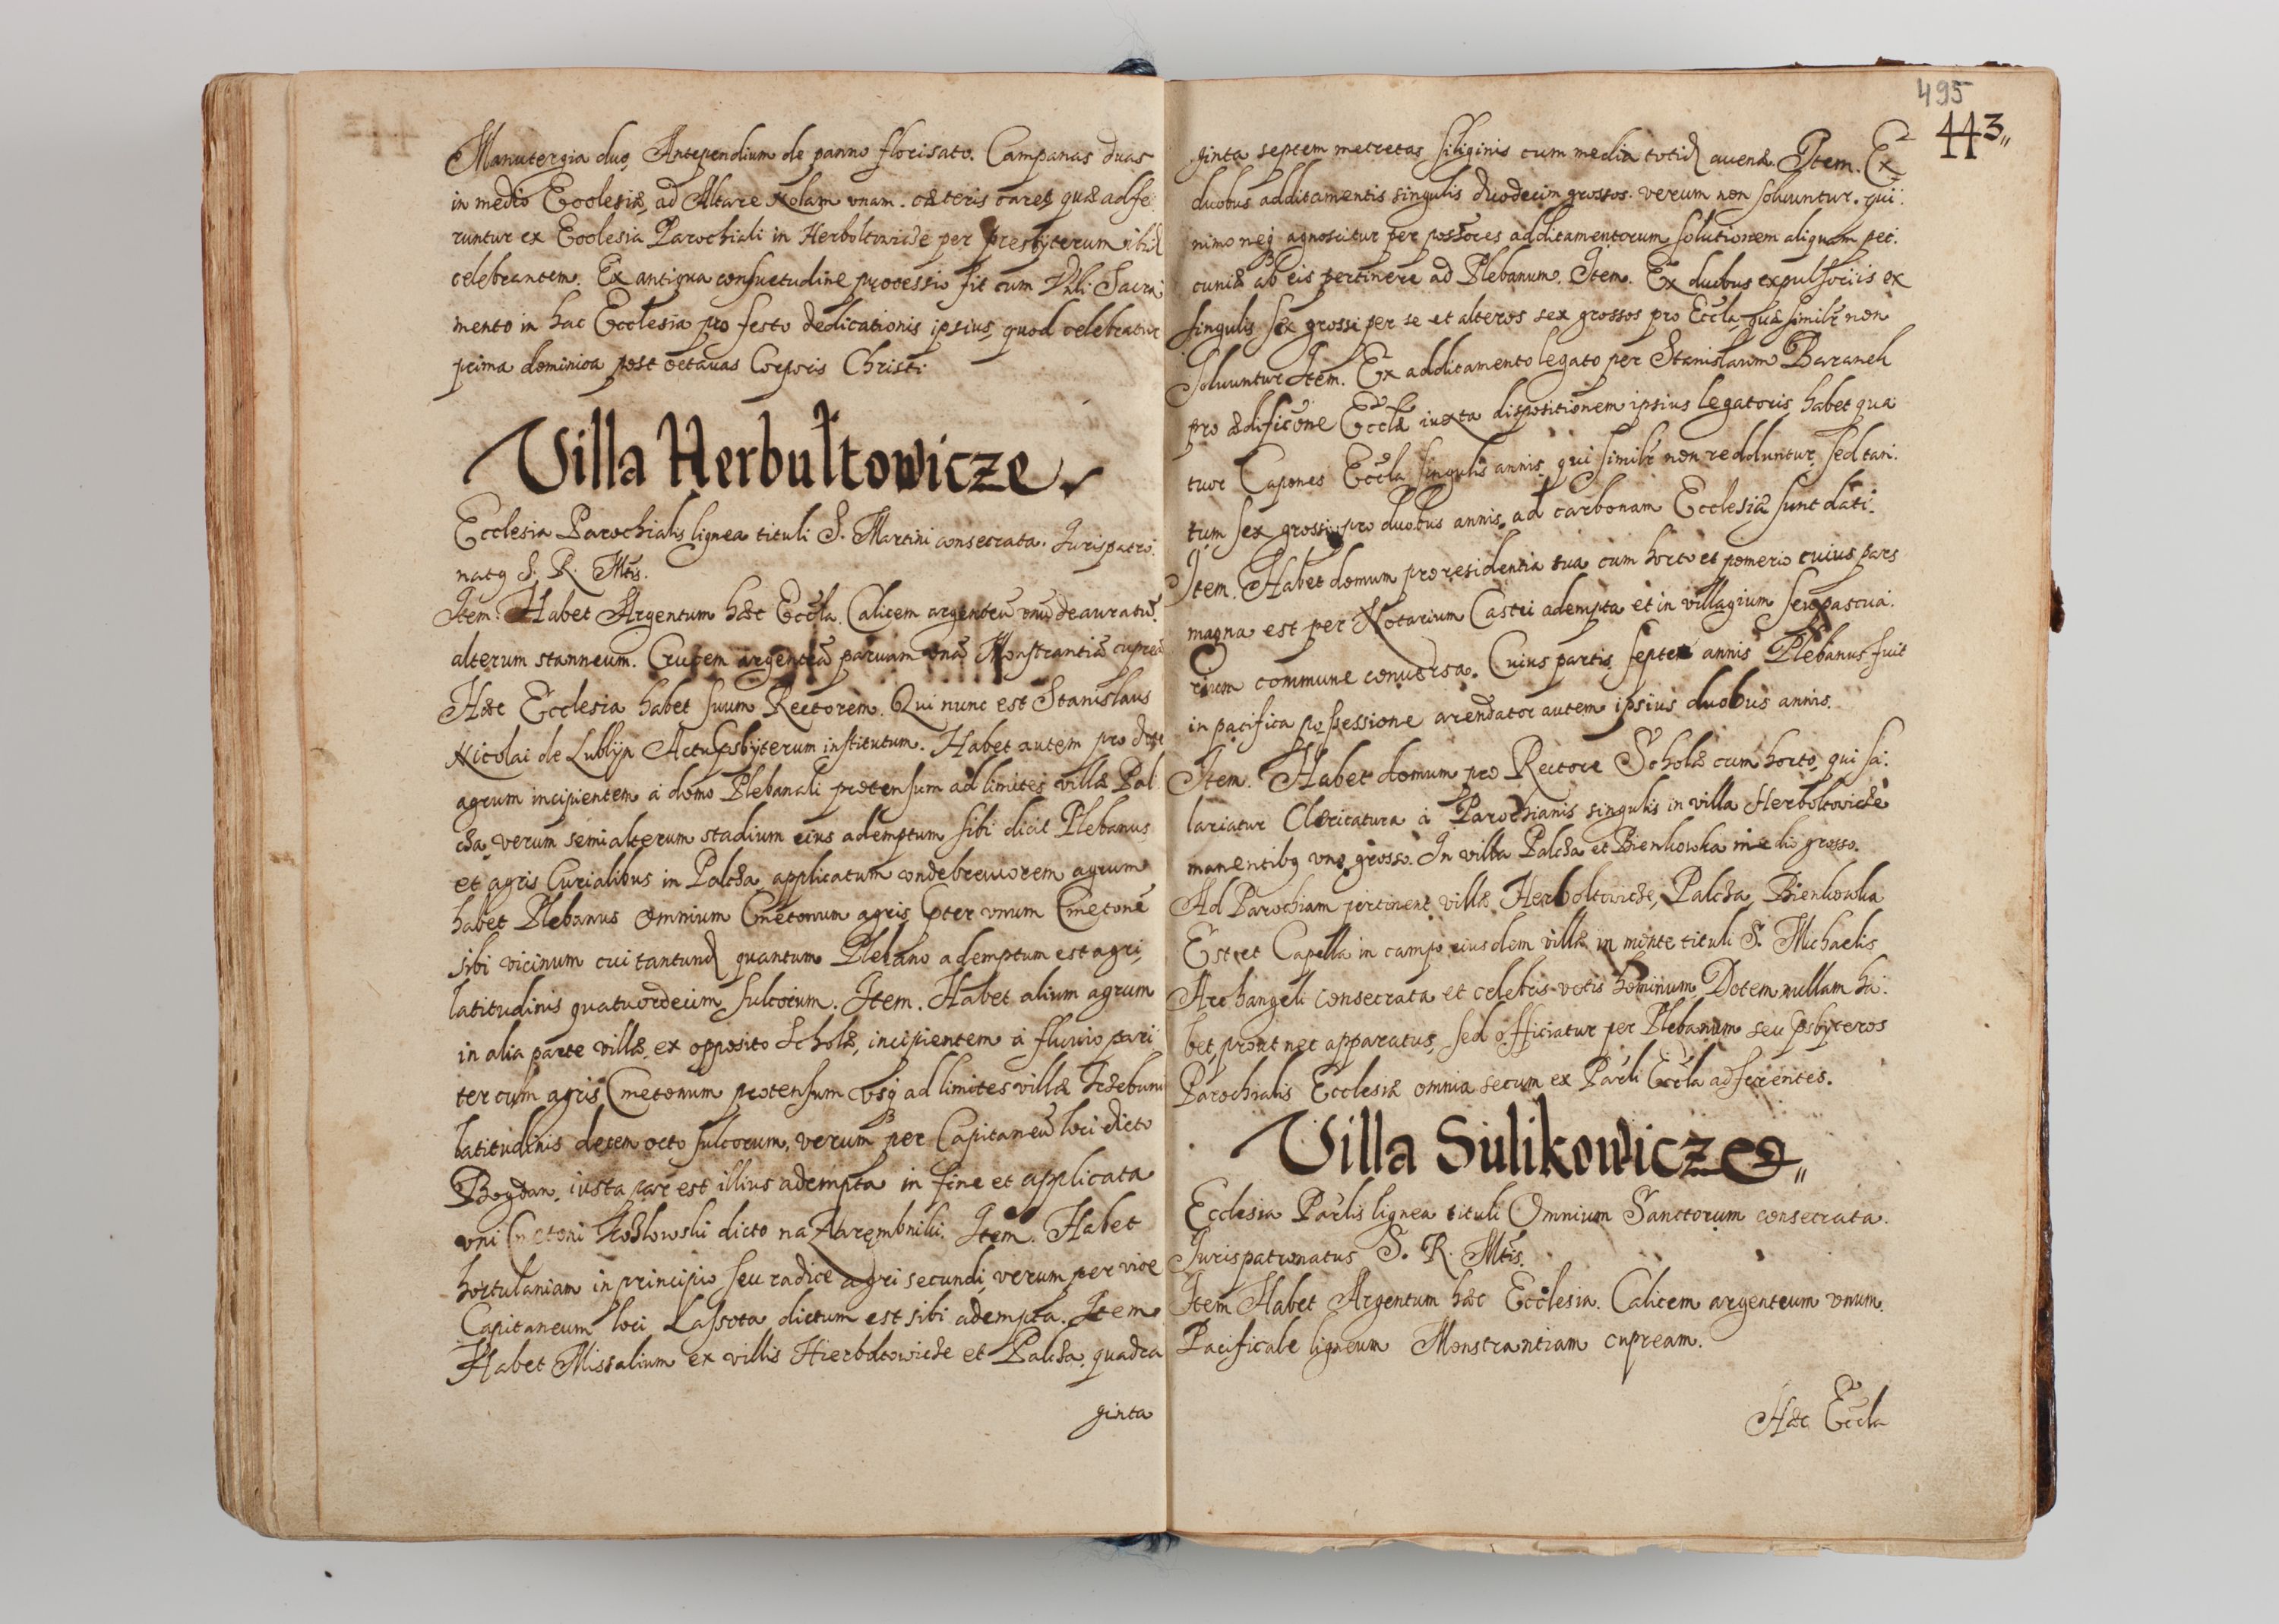 Manutergia duo Antependium de panno florisato. Campanas duas
in medio Ecclesiæ, ad Altare Nolam vnam. cæteris caret quæ adfe
runtur ex Ecclesia Parochiali in Herboltowicze per presbyterum ibid
celebrantem. Ex antiqua consuetudine processio fit cum Vnli Sacra
mento in hac Ecclesia pro festo dedicationis ipsius, quod celebratur
prima dominica post octauas Corporis Christi
Villa Herbultowicze
Ecclesia Parochialis lignea tituli S. Martini consecrata. Jurispatro
natq S. R. Mtis.
Item. Habet Argentum hæc Eccla. Calicem argenteū vnū deauratū.
alterum stanneum. Crucem argenteā paruam vnā Monstrantiā cupreā
Hæc Ecclesia habet suum Rectorem. Qui nunc est Stanislaus
Nicolai de Lublyn Actu psbyterum institutum. Habet autem pro dote
agrum incipientem á domo Plebanali protensum ad limites villæ Pal
cza, verum semialterum stadium eius ademptum sibi dicit Plebanus
et agris Curialibus in Palcza applicatum condebreuiorem agrum
habet Plebanus omnium Cmetonum agris pter vnum Cmetonē
sibi vicinum cui tantund quantum Plebano ademptum est agri,
latitudinis quatuordecim sulcorum. Item. Habet alium agrum
in alia parte villæ, ex opposito Scholæ, incipientem á fluuio pari
ter cum agris Cmetonum protensum vsq ad limites villæ Trzebuni
latitudinis decem octo sulcorum, verum per Capitaneū loci dicto
Bogdan, iusta pars est illius adempta in fine et applicata
vni Cmetoni Kozlowski dicto na Zarembniki. Item. Habet
hortulaniam in principio seu radice agri secundi, verum per vice
Capitaneum loci Lassota dictum est sibi adempta. Item
Habet Missalium ex villis Hierboltowicze et Palcza, quadra
ginta
495
443
ginta septem metretas siliginis cum media totid auenæ. Item. Ex
duobus additamentis singulis duodecim grossos. verum non soluuntur. qui:
nimo neq agnoscitur per possores additamentorum solutionem aliquam pec:
cuniæ ab eis pertinere ad Plebanum. Item. Ex duobus expulsoriis ex
singulis sex grossi per se et alteros sex grossos pro Eccla, quæ similr non
soluuntur Item. Ex additamento legato per Stanislaum Baranek
pro ædificone Ecclæ iuxta dispositionem ipsius legatoris habet qua
tuor Capones Eccla singulis annis, qui similr non redduntur, sed tan:
tum sex grossi pro duobus annis ad carbonam Ecclesiæ sunt dati.
Item. Habet domum pro residentia sua cum horto et pomerio cuius pars
magna est per Notarium Castri adempta et in villagium seu pascua:
rium commune conuersa. Cuius partis septem annis Plebanus fuit
in pacifica possessione arendator autem ipsius duobus annis.
Item. Habet domum pro Rectore Scholæ cum horto, qui sa:
lariatur Clericatura á Parochianis singulis in villa Herboltowicze
manentibq vno grosso. In villa Palcza et Bienkowka medio grosso.
Ad Parochiam pertinent villæ Herboltowicze, Palcza, Bienkowka
Est et Capella in campo eiusdem villæ in monte tituli S. Michaelis
Archangeli consecrata et celebris votis hominum Dotem nullam ha:
bet, prout nec apparatus, sed officiatur per Plebanum seu psbyteros
Parochialis Ecclesiæ omnia secum ex Parli Eccla adferentes.
Villa Sulikowicze
Ecclesia Parlis lignea tituli Omnium Sanctorum consecrata.
Jurispatronatus S. R. Mtis.
Item Habet Argentum hæc Ecclesia. Calicem argenteum vnum.
Pacificale ligneum Monstrantiam cupream.
Hæc Eccla